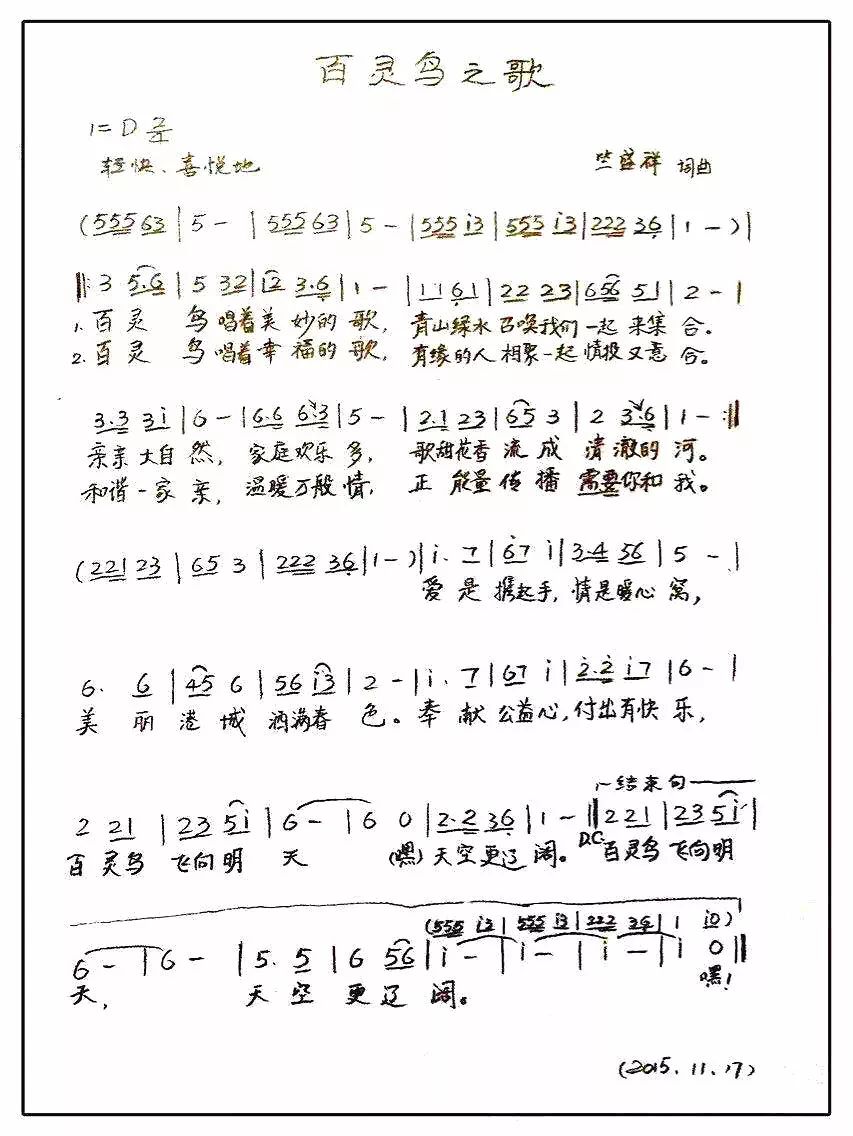 百灵鸟之歌
1=D 2/4
轻快、喜悦地
竺盛祥 词曲
(555 63 | 5 - | 555 63 | 5 - | 555 i3 | 555 i3 | 222 36 | 1 - ) |
‖: 3 5.6 | 5 32 | i2 3.6 | 1 - | 11 61 | 22 23 | 656 51 | 2 - |
1. 百灵 鸟唱着美妙的歌, 青山绿水召唤我们一起来集合.
2. 百灵 鸟唱着幸福的歌, 有缘的人相聚一起情投又意合.
3.3 3i | 6 - | 6.6 6.3 | 5 - | 2.1 23 | 65 3 | 2 3.6 | 1 - :‖
亲亲大自然, 家庭欢乐多, 歌甜花香流成清澈的河。
和谐一家亲, 温暖万般情, 正能量传播需要你和我。
(221 23 | 65 3 | 222 36 | 1 - ) | i. 7 | 67 i | 3.4 36 | 5 - |
爱是携起手, 情是暖心窝,
6. 6 | 45 6 | 56 i3 | 2 - | i. 7 | 67 i | 2.2 i7 | 6 - |
美丽港城洒满春色。奉献公益心, 付出有快乐,
结束句
2 21 | 23 5i | 6 - | 6 0 | 2.2 36 | 1 - ‖ 2 21 | 23 5i |
D.C.
百灵鸟飞向明天 (嘿) 天空更辽阔。 百灵鸟飞向明
(555 i3 | 555 i3 | 222 36 | 1 i0)
6 - | 6 - | 5. 5 | 6 56 | i - | i - | i - | i 0 ‖
天, 天空更辽阔。 嘿!
(2015.11.17)